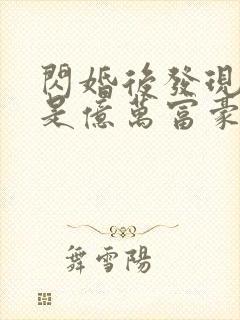 閃婚後發現
是億萬富豪
舞雪陽